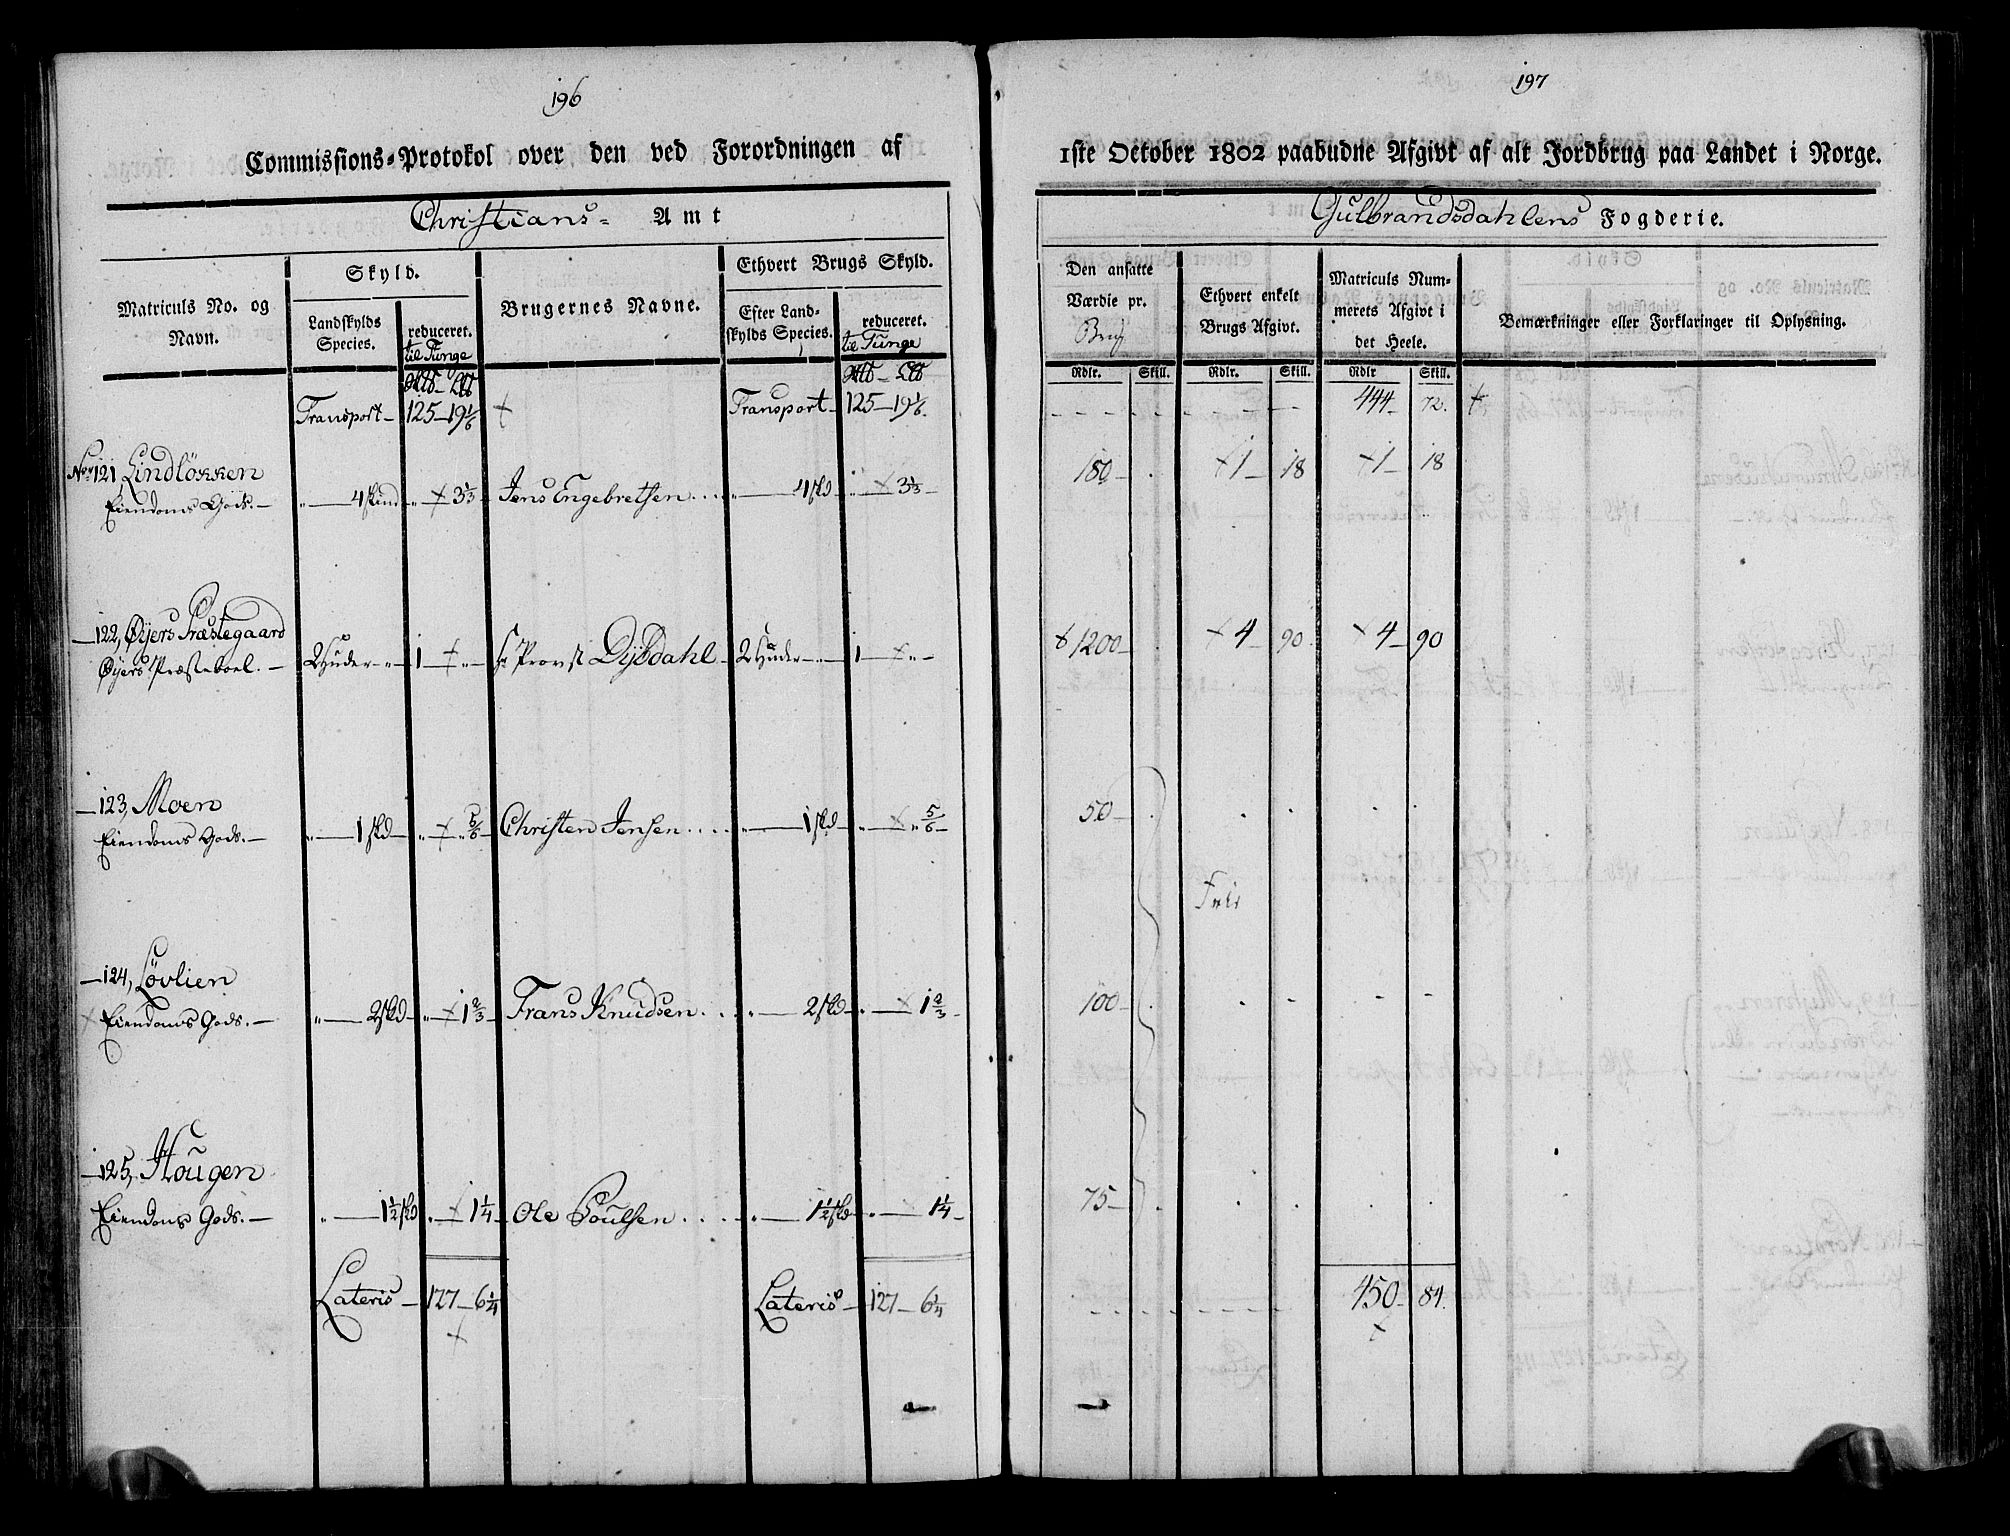 196
Commissions-Protokol over den ved Forordningen af
Christians- Amt
Matriculs No. og Navn.
Skyld.
Landskylds Species.
reduceret. til Tunge
Brugernes Navne.
Ethvert Brugs Skyld.
Efter Landskylds Species.
reduceret. til Tunge
Transport 125 19 1/6 Transport 125 19 1/6
No 121 Lindløkken
Eiendoms Gods. 4 skind 3 1/3 Jens Engebretsen 4 skd 3 1/3
122, Øyers Præstegaard
Øyers Præsteboel. 2 Huder 1 Hr Provst Dybdahl 2 Huder 1
123, Moen
Eiendoms Gods. 1 skd 5/6 Christen Jensen 1 skd 5/6
124, Løvlien
Eiendoms Gods. 2 skd 1 2/3 Frans Knudsen 2 skd 1 2/3
125, Hougen
Eiendoms Gods. 1 1/2 skd 1 1/4 Ole Poulsen 1 1/2 skd 1 1/4
Lateris 127 6 1/4 Lateris 127 6 1/4
197
1ste October 1802 paabudne Afgivt af alt Jordbrug paa Landet i Norge.
Gulbrandsdahlens Fogderie.
Den ansatte Værdie pr. Brug
Ethvert enkelt Brugs Afgivt.
Matriculs Nummerets Afgivt i det Heele.
Bemærkninger eller Forklaringer til Oplysning.
Rdlr. Skill. Rdlr. Skill. Rdlr Skill.
444 72.
180 1 18 1 18
1200 4 90 4 90
50
Frie
100
75
450 84.